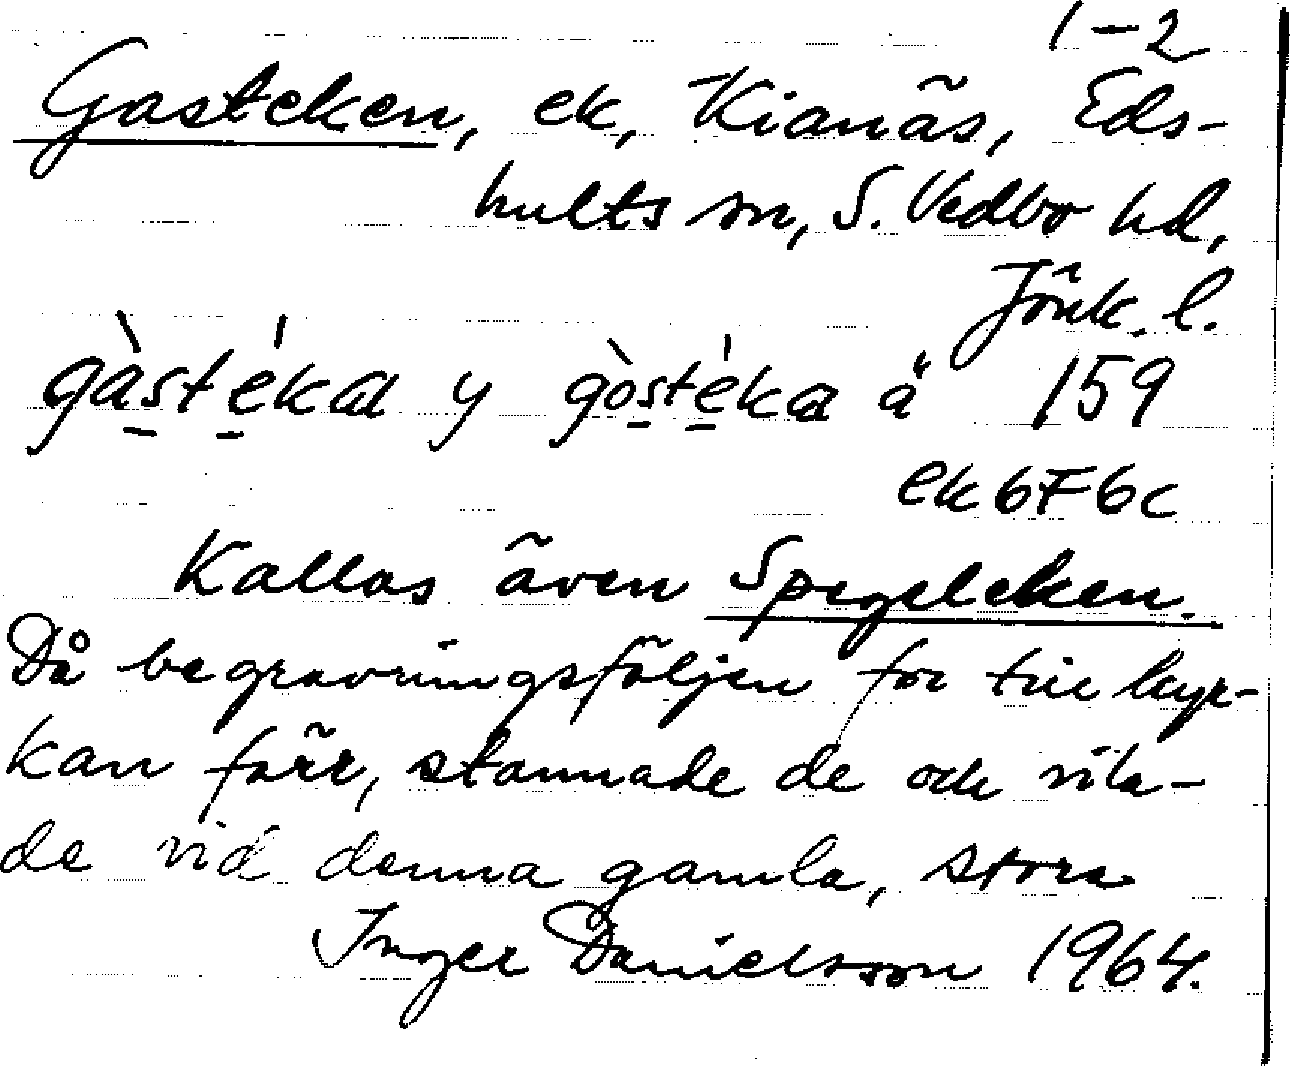 1-2
Gasteken, ek, Kianäs, Eds-
hults sn, S. Vedbo hd,
Jönk. l.
gàstéka y gòstéka ä 159
ek 6F6c
Kallas även Spegeleken.
Då begravningsföljen for till kyr-
kan förr, stannade de och vila-
de vid denna gamla, stora
Inger Danielsson 1964.